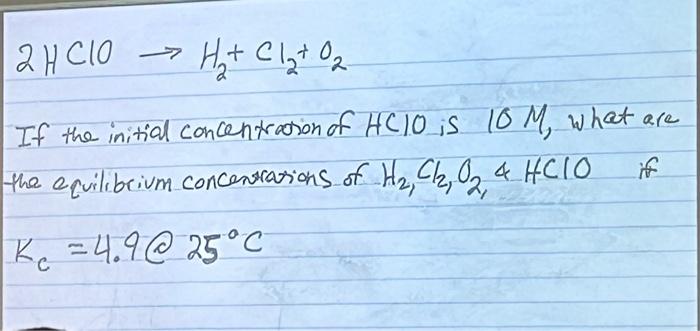 2HClO → H₂ + Cl₂ + O₂
If the initial concentration of HClO is 10 M, what are
the equilibrium concentrations of H₂, Cl₂, O₂, & HClO if
Kc = 4.9 @ 25°C